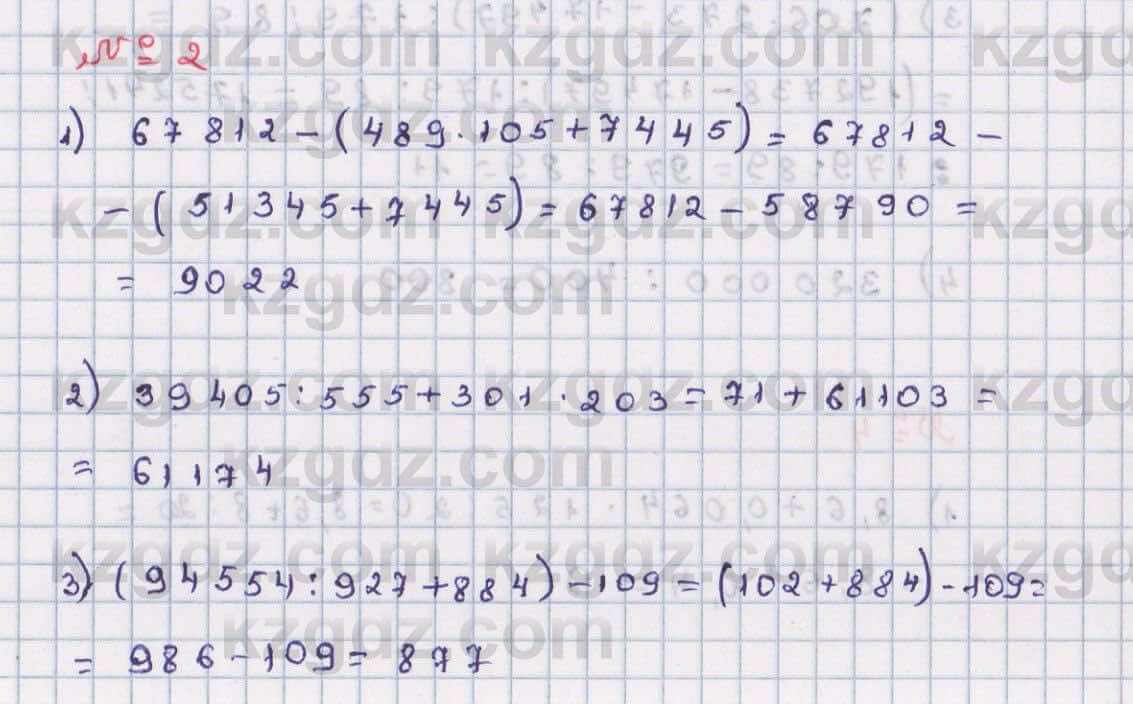 № 2
1) 67812-(489·105+7445)=67812-
-(51345+7445)=67812-58790=
= 9022
2) 39405:555+301·203=71+61103=
= 61174
3) (94554:927+884)-109=(102+884)-109=
= 986-109=877
kzgdz.com